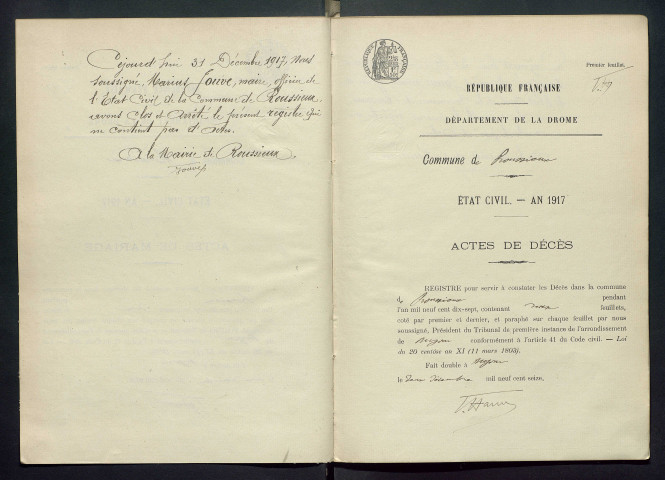 Cejourd'hui 31 Décembre 1917, Nous
soussigné, Marius Jouve, maire, officier de
l'Etat Civil de la Commune de Roussieux,
avons clos et Arrêté le présent registre qui
ne contient pas d'actes.
A la Mairie de Roussieux,
Jouve
RÉPUBLIQUE FRANÇAISE
Premier feuillet.
RÉPUBLIQUE FRANÇAISE
DÉPARTEMENT DE LA DROME
Commune de Roussieux
ÉTAT CIVIL. — AN 1917
ACTES DE DÉCÈS
REGISTRE pour servir à constater les Décès dans la commune
de Roussieux pendant
l'an mil neuf cent dix-sept, contenant feuillets,
coté par premier et dernier, et paraphé sur chaque feuillet par nous
soussigné, Président du Tribunal de première instance de l'arrondissement
de Nyons conformément à l'article 41 du Code civil. — Loi
du 20 ventôse an XI (11 mars 1803).
Fait double à Nyons
le Décembre mil neuf cent seize.